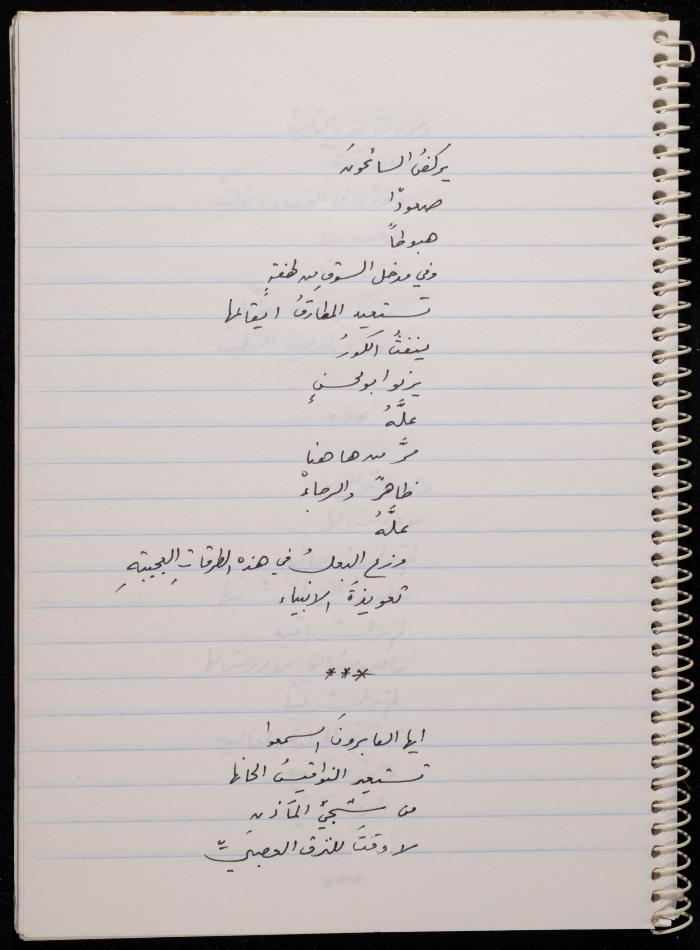 يركضُ السائحونَ
صعودًا
هبوطاً
وفي مدخل السوقِ من لهفةٍ
تستعيد المطارقُ ايقاعها
ينفثُ الكورُ
يرنو ابو محسنٍ
علَّهُ
مرَّ من ها هنا
ظاهرٌ والرجاءْ
علَّهُ
وزع البعلُ في هذه الطرقاتِ العجيبةِ
تعويذةَ الانبياء
***
ايها العابرونَ اسمعوا
تستعير النواقيسُ الحانها
من شجيِّ المآذن
لا وقتَ للنزق العصبيِّ